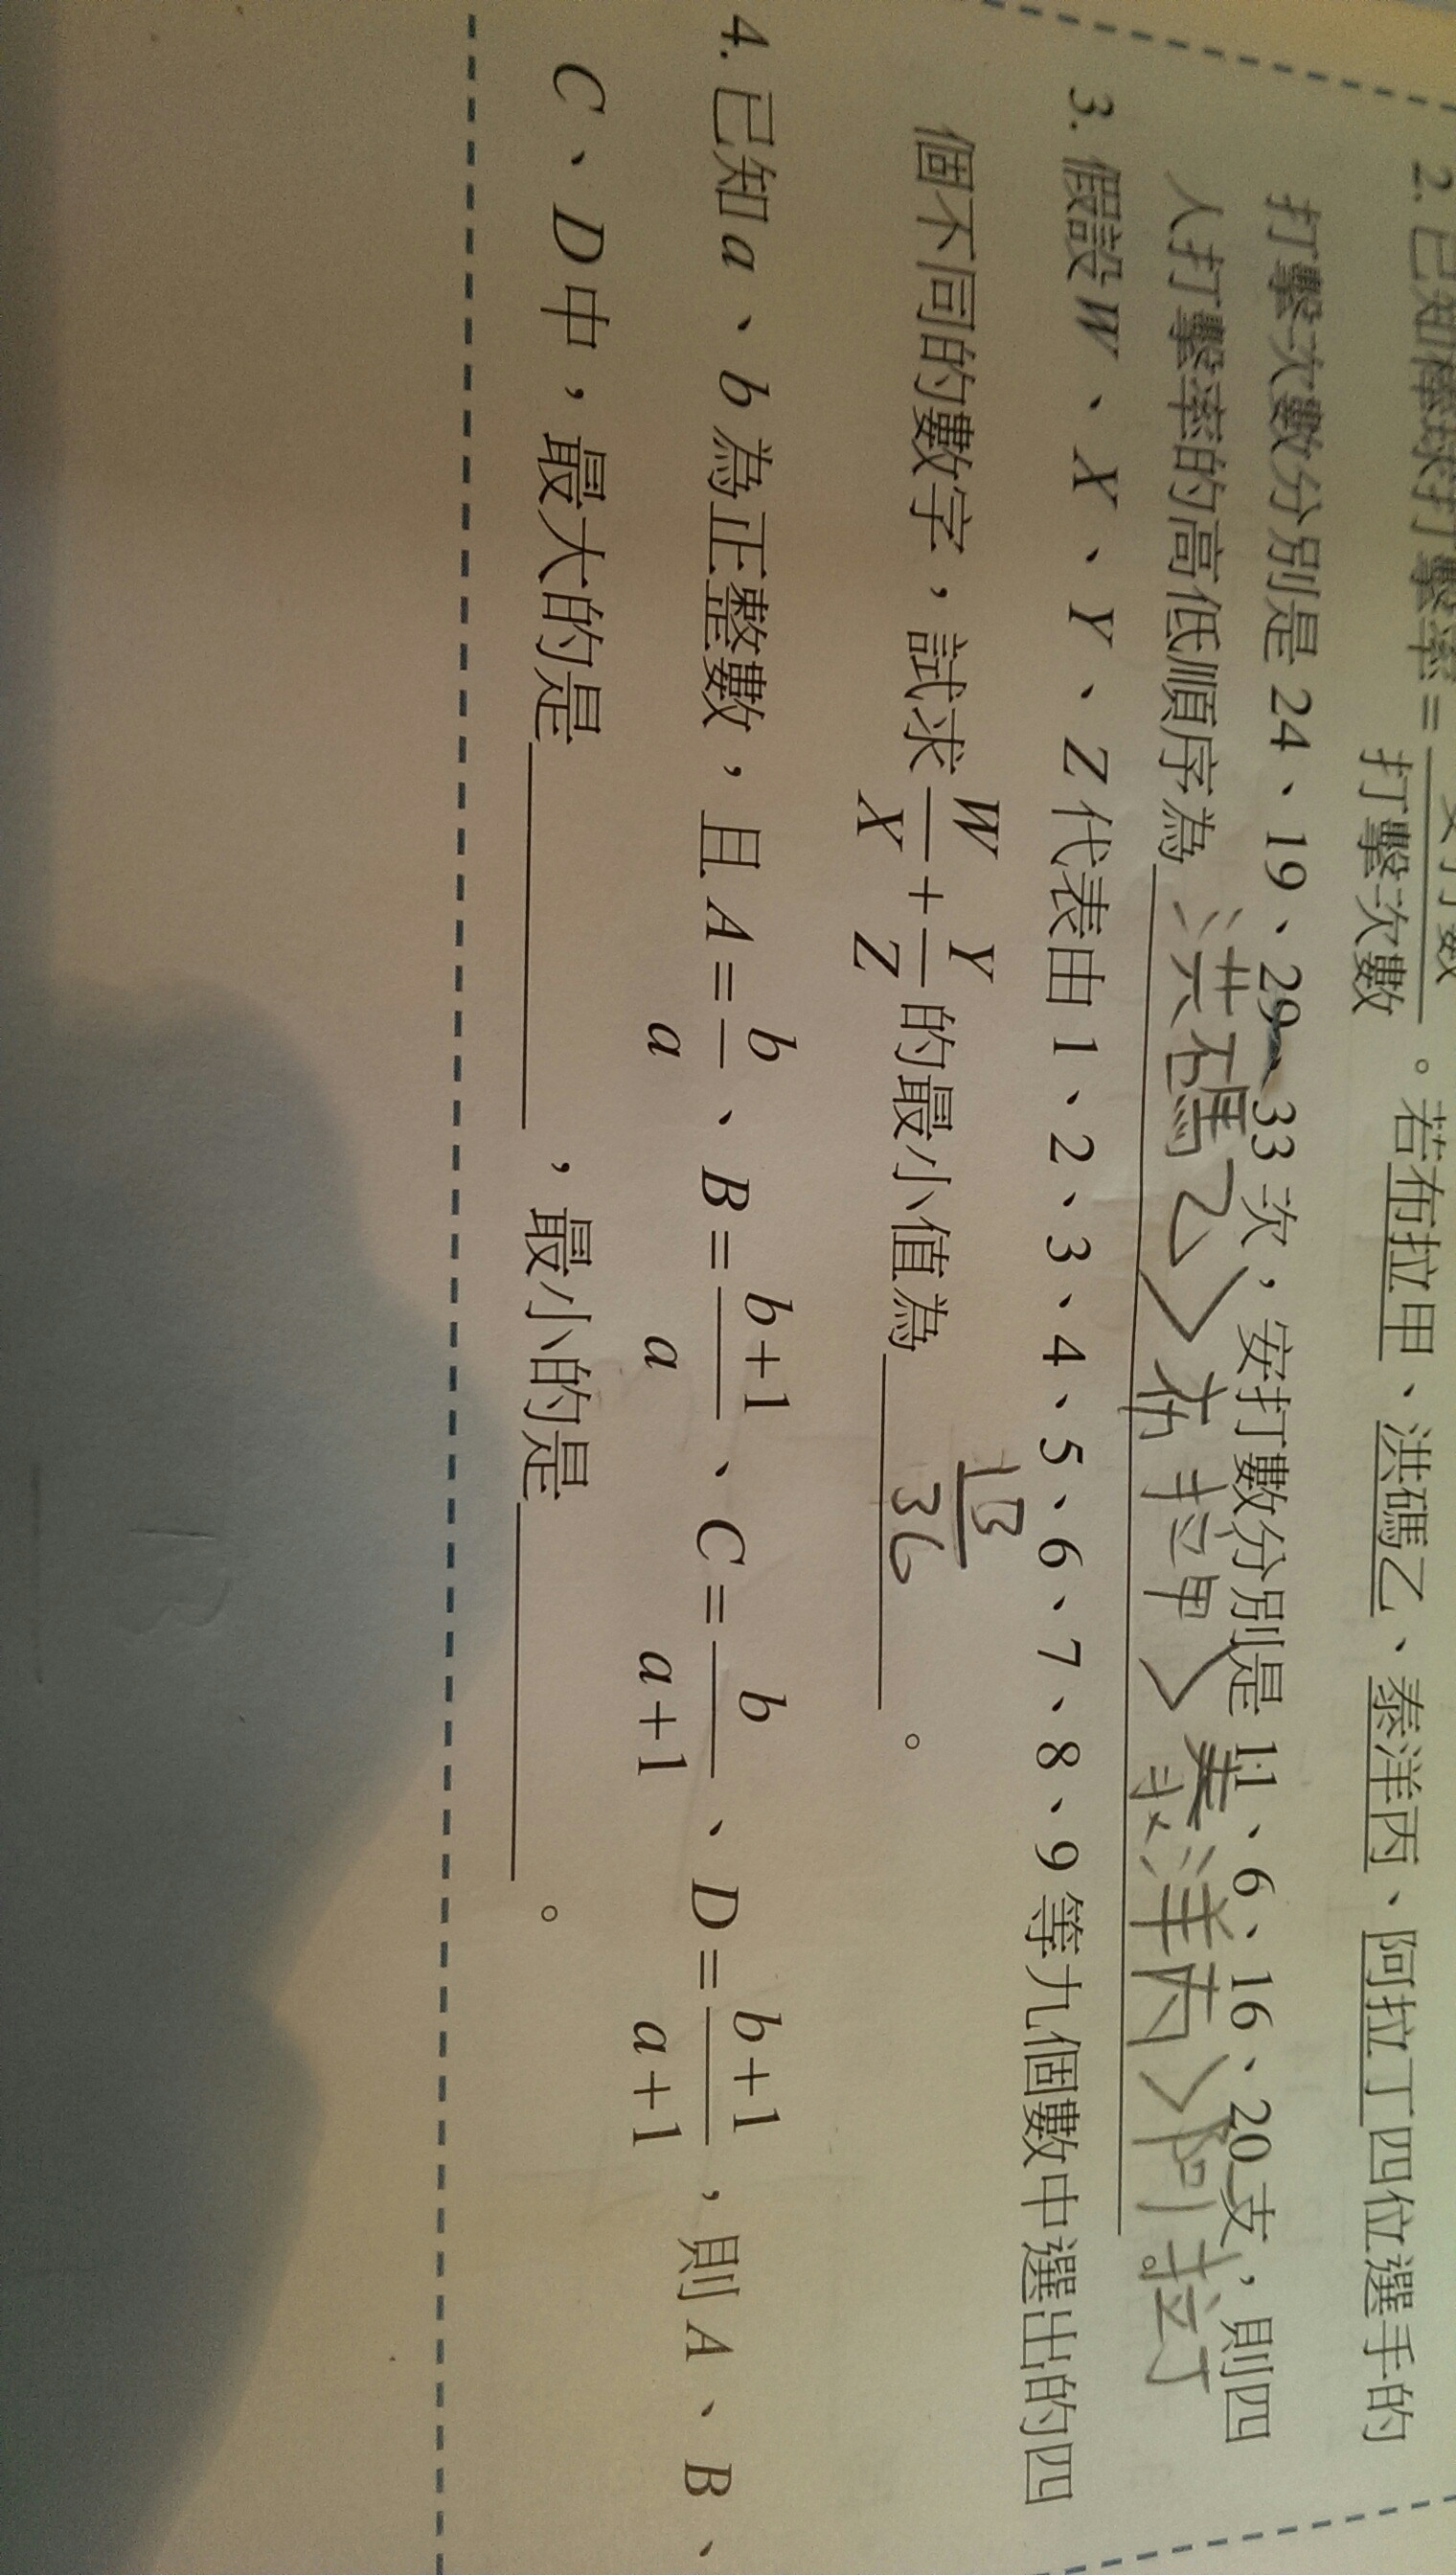 2. 已知棒球打擊率=安打數/打擊次數。若布拉甲、洪碼乙、泰洋丙、阿拉丁四位選手的
打擊次數分別是 24、19、29、33 次，安打數分別是 11、6、16、20 支，則四
人打擊率的高低順序為 洪碼乙>布拉甲>泰洋丙>阿拉丁。
3. 假設 W、X、Y、Z 代表由 1、2、3、4、5、6、7、8、9 等九個數中選出的四
個不同的數字，試求 W/X + Y/Z 的最小值為 13/36。
4. 已知 a、b 為正整數，且 A=b/a、B=(b+1)/a、C=b/(a+1)、D=(b+1)/(a+1)，則 A、B、
C、D 中，最大的是，最小的是。